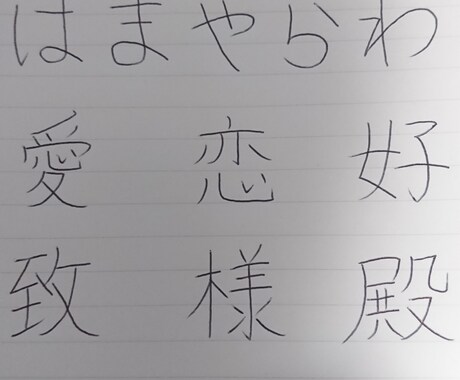 はまやらわ
愛 恋 好
致 様 殿